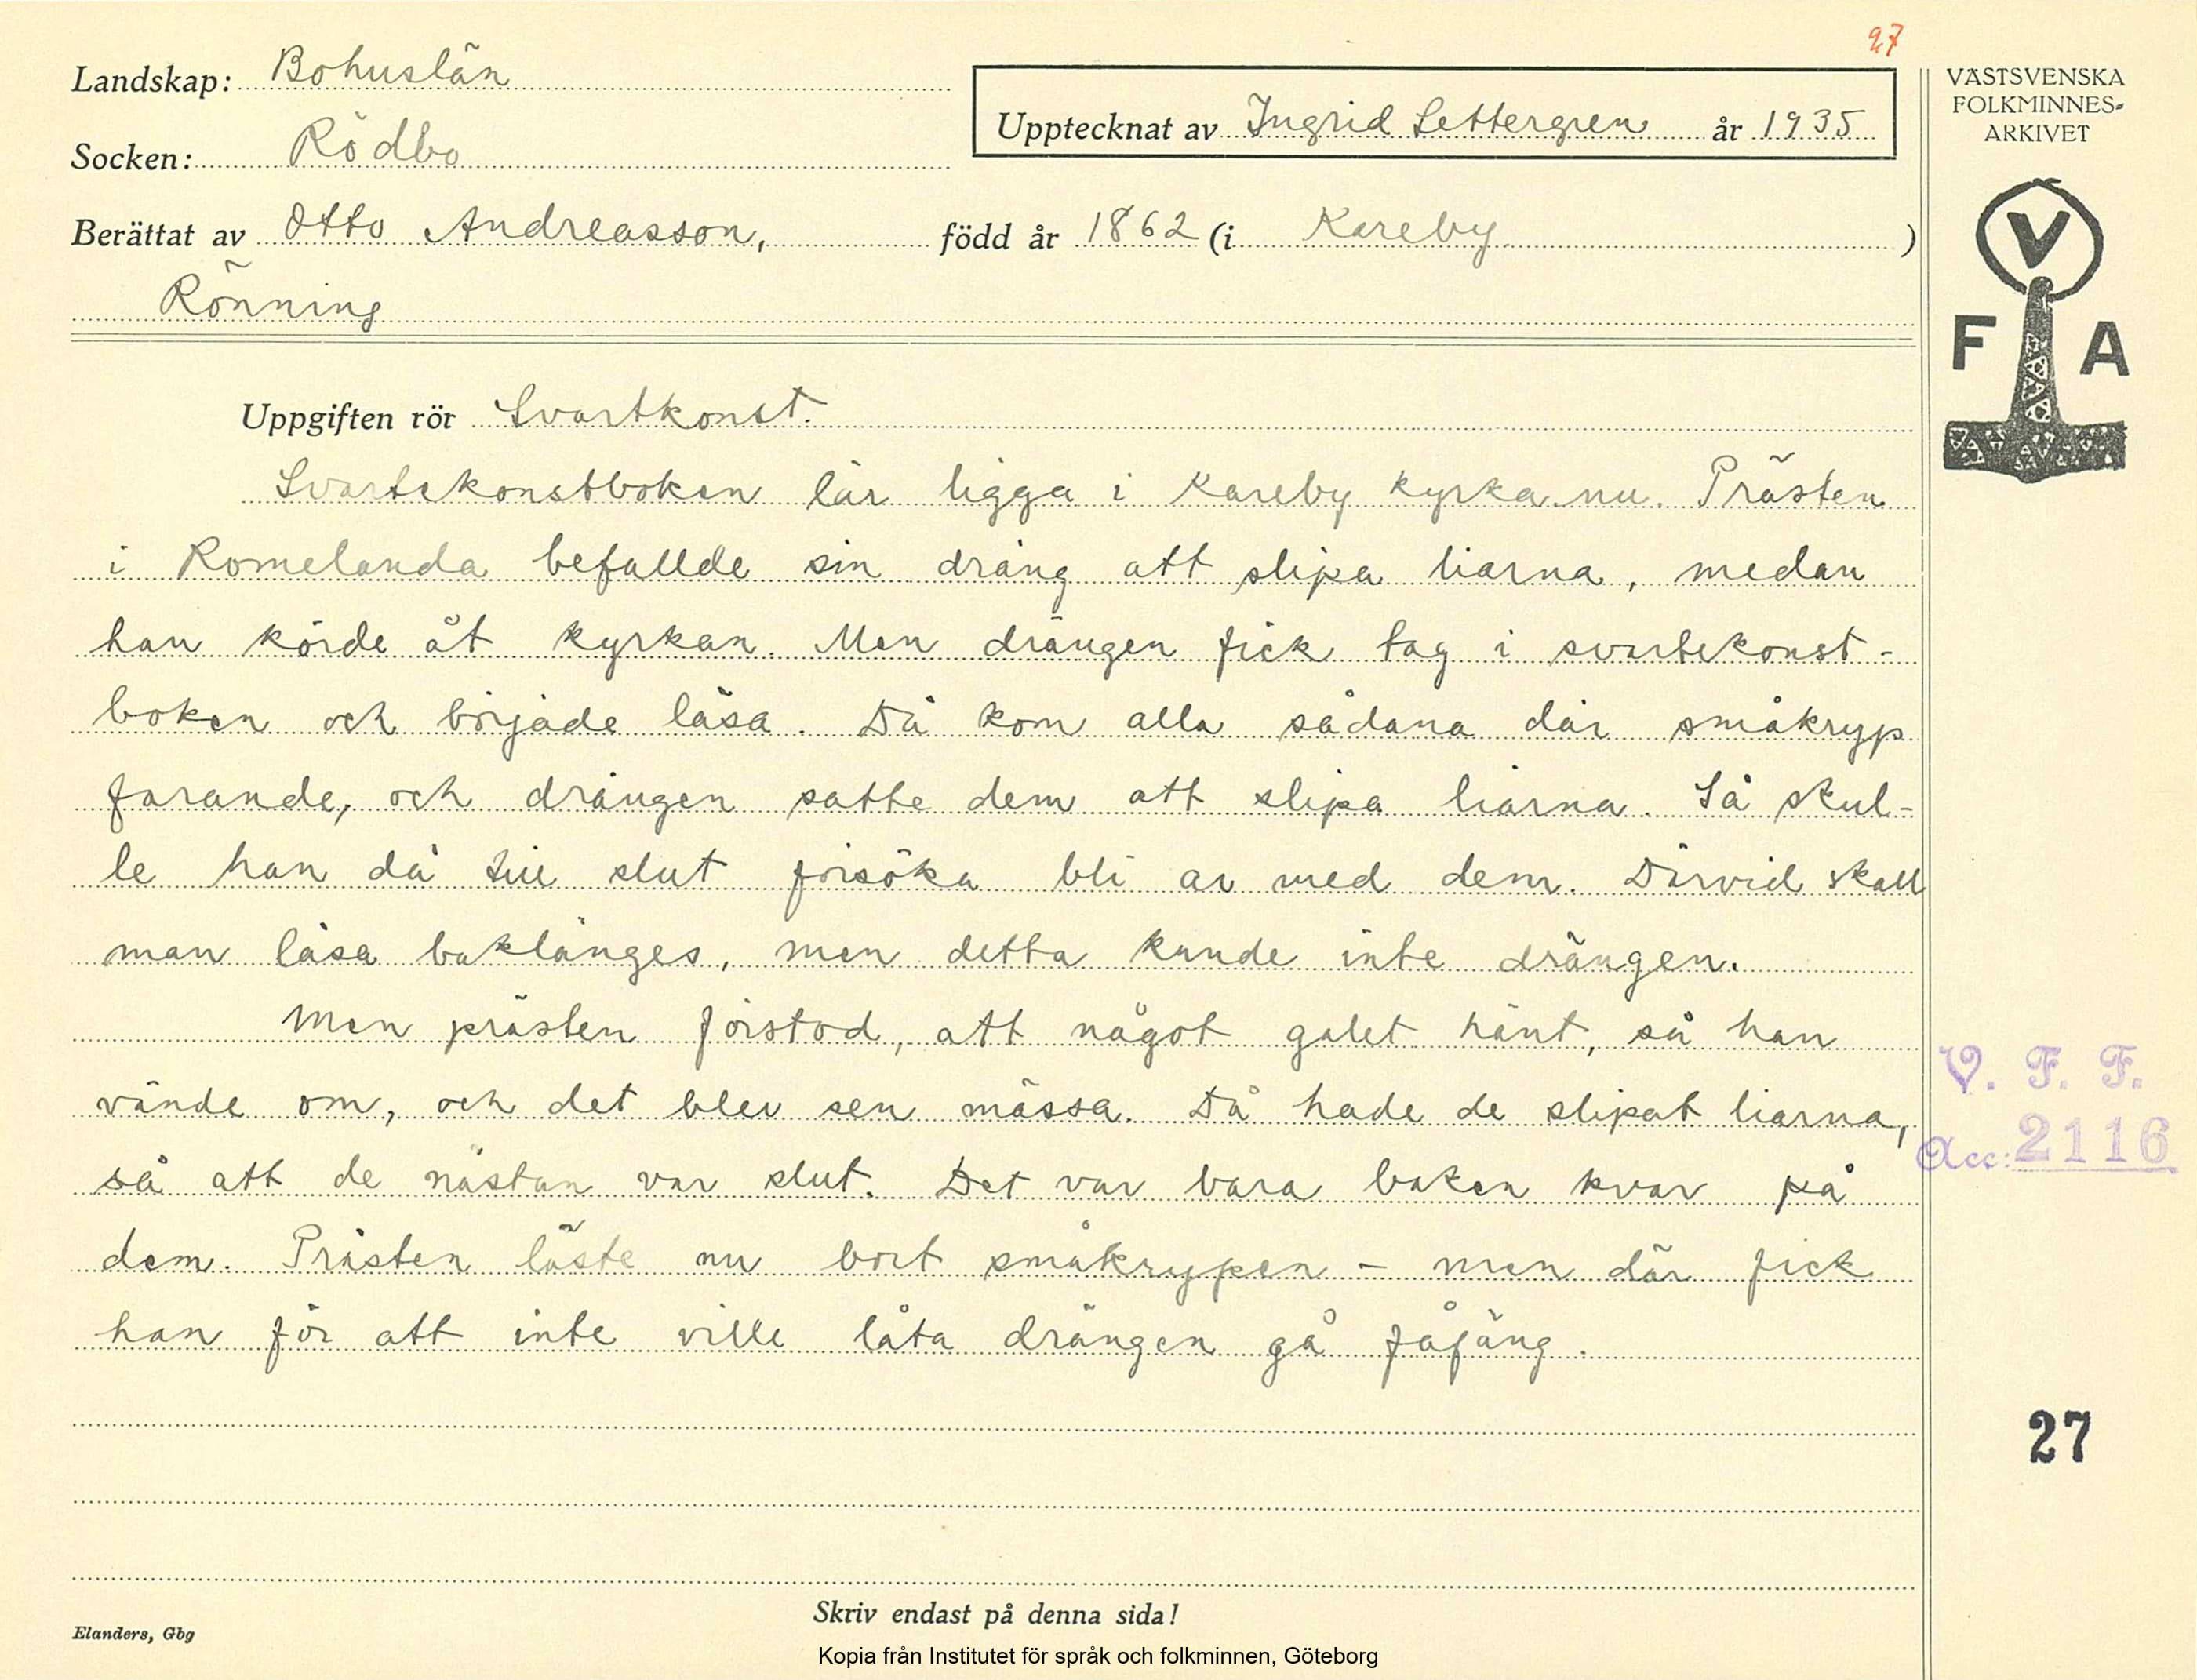 27
Landskap: Bohuslän
Upptecknat av Ingrid Settergren år 1935
Socken: Rödbo
Berättat av Otto Andreasson, född år 1862 (i Kareby )
Rönning
Uppgiften rör Svartkonst.
Svartekonstboken lär ligga i Kareby kyrka nu. Prästen
i Romelanda befallde sin dräng att slipa liarna, medan
han körde åt kyrkan. Men drängen fick tag i svartekonst-
boken och började läsa. Då kom alla sådana där småkryp
farande, och drängen satte dem att slipa liarna. Så skul-
le han då till slut försöka bli av med dem. Därvid skall
man läsa baklänges, men detta kunde inte drängen.
Men prästen förstod, att något galet hänt, så han
vände om, och det blev sen mässa. Då hade de slipat liarna,
så att de nästan var slut. Det var bara baken kvar på
dem. Prästen läste nu bort småkrypen – men där fick
han för att inte ville låta drängen gå fåfäng.
Skriv endast på denna sida!
Elanders, Gbg
Kopia från Institutet för språk och folkminnen, Göteborg
VÄSTSVENSKA
FOLKMINNES-
ARKIVET
V
F A
V. F. F.
Acc: 2116
27